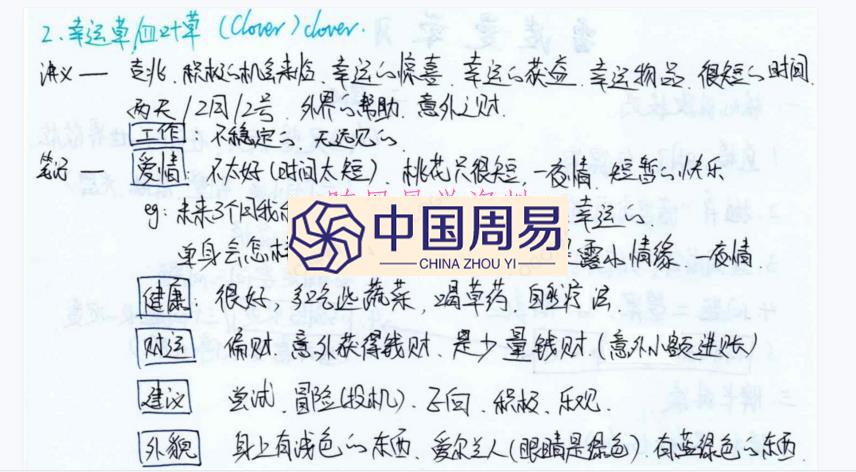 2.幸运草/四叶草 (Clover) clover.
讲义— 吉兆、积极的机会来临、幸运的惊喜、幸运的获益、幸运物品 很短的时间
两天/2周/2号 外界的帮助、意外之财
工作:不稳定的、无远见的
笔记 爱情 不太好(时间太短)、桃花只很短,一夜情、短暂的快乐
eg:未来3个月我的 幸运的.
中国周易
CHINA ZHOU YI
单身会怎样 露水情缘、一夜情
健康:很好,多吃些蔬菜,喝草药、自然疗法
财运 偏财、意外获得钱财、是少量钱财(意外小额进账)
建议 尝试、冒险(投机)、积极、乐观.
外貌 身上有浅色的东西、爱尔兰人(眼睛是绿色)、有蓝绿色的东西